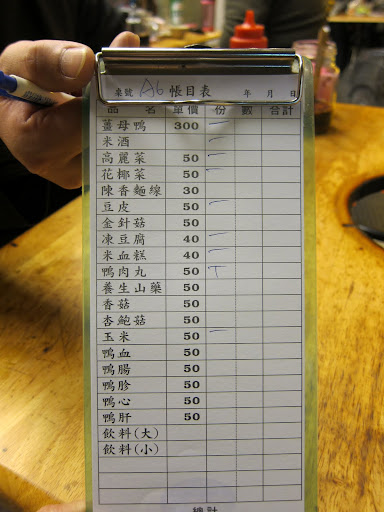 桌號 A6 帳目表 年 月 日
品名 單價 份數 合計
薑母鴨 300 一
米酒 一
高麗菜 50 一
花椰菜 50 一
陳香麵線 30
豆皮 50 一
金針菇 50
凍豆腐 40 一
米血糕 40 一
鴨肉丸 50 丅
養生山藥 50
香菇 50
杏鮑菇 50
玉米 50 一
鴨血 50
鴨腸 50
鴨胗 50
鴨心 50
鴨肝 50
飲料(大)
飲料(小)
總計